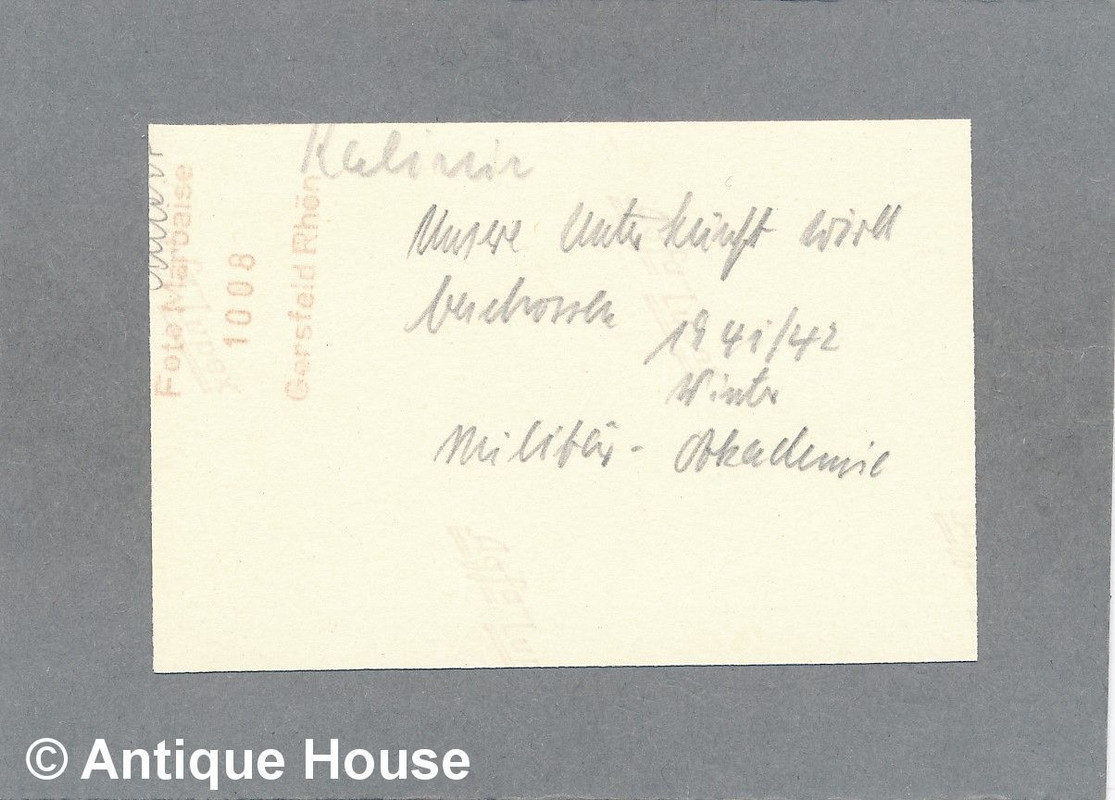 Kalinin
Unsere Unterkunft wird
beschossen 1941/42
Winter
Militär- Akademie
Foto Marbaise
1008
Gersfeld Rhön
© Antique House